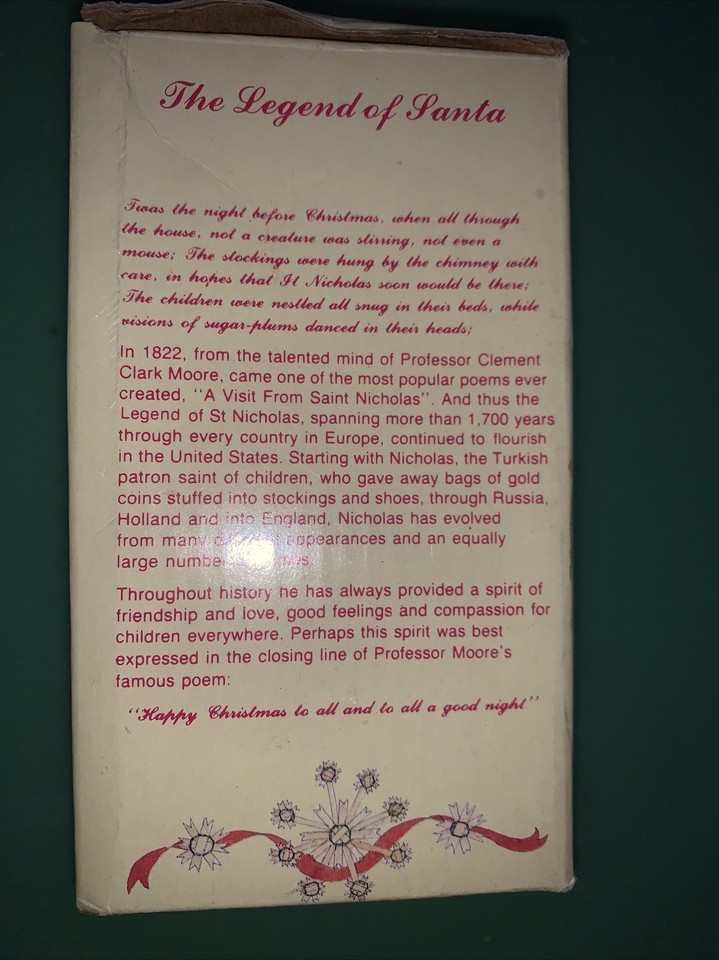 The Legend of Santa
Twas the night before Christmas, when all through
the house, not a creature was stirring, not even a
mouse; The stockings were hung by the chimney with
care, in hopes that St Nicholas soon would be there;
The children were nestled all snug in their beds, while
visions of sugar-plums danced in their heads;
In 1822, from the talented mind of Professor Clement
Clark Moore, came one of the most popular poems ever
created, "A Visit From Saint Nicholas". And thus the
Legend of St Nicholas, spanning more than 1,700 years
through every country in Europe, continued to flourish
in the United States. Starting with Nicholas, the Turkish
patron saint of children, who gave away bags of gold
coins stuffed into stockings and shoes, through Russia,
Holland and into England, Nicholas has evolved
from many appearances and an equally
large number
Throughout history he has always provided a spirit of
friendship and love, good feelings and compassion for
children everywhere. Perhaps this spirit was best
expressed in the closing line of Professor Moore's
famous poem:
"Happy Christmas to all and to all a good night"